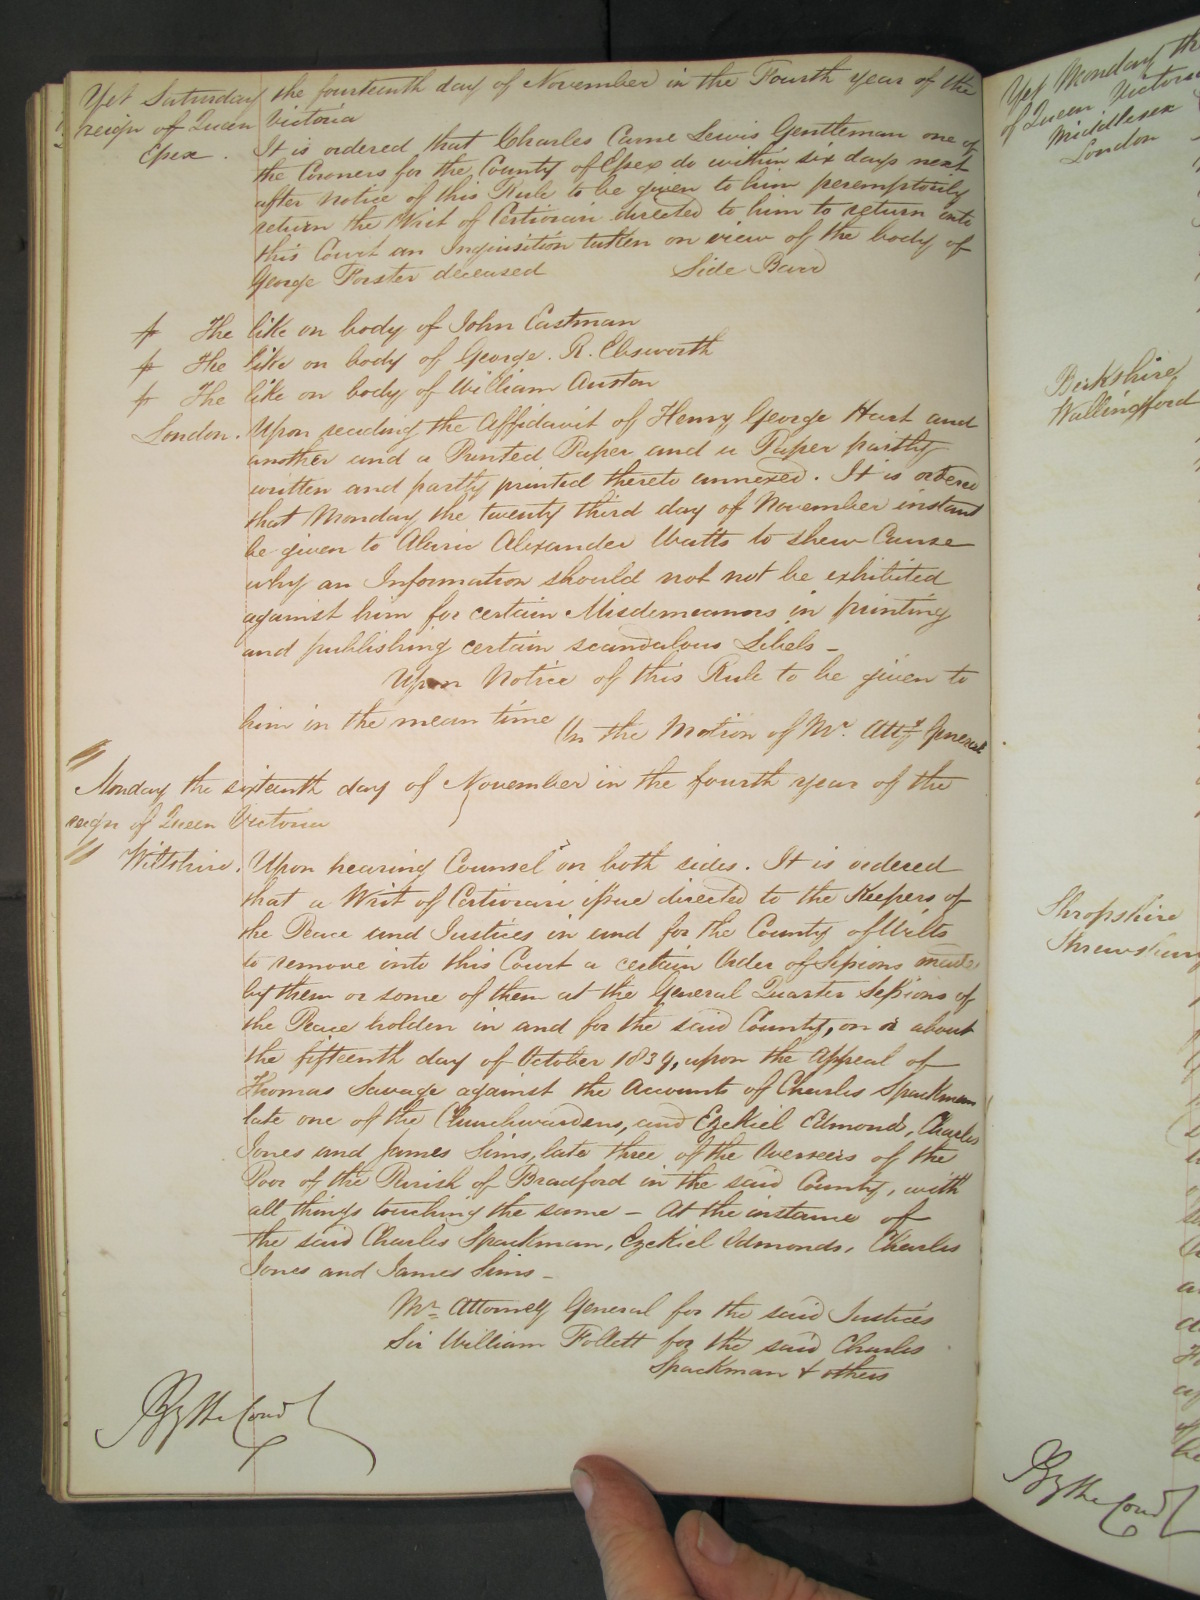 Yet Saturday the fourteenth day of November in the Fourth year of the
reign of Queen Victoria
Essex. It is ordered that Charles Carne Lewis Gentleman one of
the Coroners for the County of Essex do within six days next
after notice of this Rule to be given to him peremptorily
return the Writ of Certiorari directed to him to return into
this Court an Inquisition taken on view of the body of
George Forster deceased Side Barr
The like on body of John Eastman
The like on body of George. R. Ebsworth
The like on body of William Auston
London. Upon reading the Affidavit of Henry George Hart and
another and a Printed Paper and a Paper partly
written and partly printed thereto annexed. It is ordered
that Monday the twenty third day of November instant
be given to Alaric Alexander Watts to shew Cause
why an Information should not not be exhibited
against him for certain Misdemeanors in printing
and publishing certain scandalous Libels -
Upon Notice of this Rule to be given to
him in the mean time On the Motion of Mr. Atty General
Monday the sixteenth day of November in the fourth year of the
reign of Queen Victoria
Wiltshire. Upon hearing Counsel on both sides. It is ordered
that a Writ of Certiorari issue directed to the Keepers of
the Peace and Justices in and for the County of Wilts
to remove into this Court a certain Order of Sessions made
by them or some of them at the General Quarter Sessions of
the Peace holden in and for the said County, on or about
the fifteenth day of October 1839, upon the Appeal of
Thomas Savage against the Accounts of Charles Spackman
late one of the Churchwardens, and Ezekiel Edmonds, Charles
Jones and James Sims, late three of the Overseers of the
Poor of the Parish of Bradford in the said County, with
all things touching the same - At the instance of
the said Charles Spackman, Ezekiel Edmonds, Charles
Jones and James Sims -
Mr. Attorney General for the said Justices
Sir William Follett for the said Charles
Spackman & others
By the Court
Yet Monday the
of Queen Victoria
Middlesex
London
Berkshire
Wallingford
Shropshire
Shrewsbury
By the Court